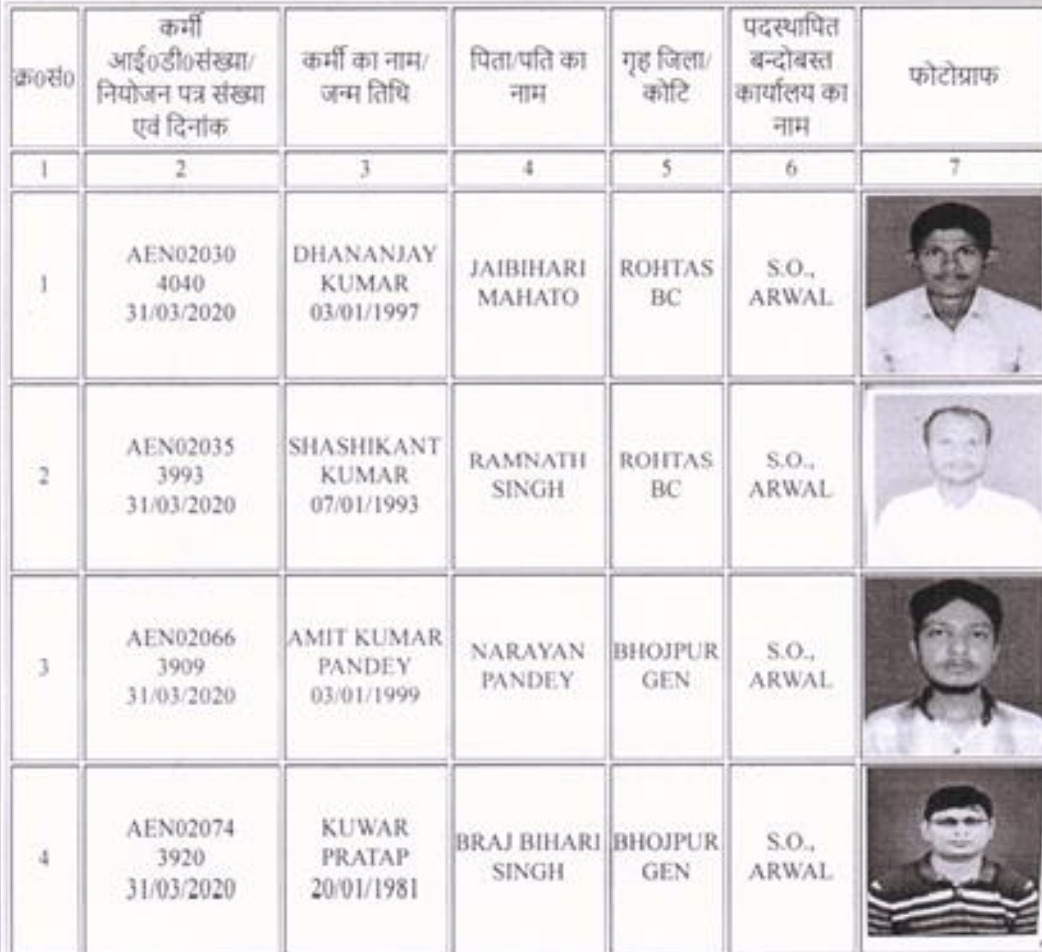 क्र०सं०
कर्मी
आई०डी०संख्या/
नियोजन पत्र संख्या
एवं दिनांक
कर्मी का नाम/
जन्म तिथि
पिता/पति का
नाम
गृह जिला/
कोटि
पदस्थापित
बन्दोबस्त
कार्यालय का
नाम
फोटोग्राफ
1
2
3
4
5
6
7
1
AEN02030
4040
31/03/2020
DHANANJAY
KUMAR
03/01/1997
JAIBIHARI
MAHATO
ROHTAS
BC
S.O.,
ARWAL
2
AEN02035
3993
31/03/2020
SHASHIKANT
KUMAR
07/01/1993
RAMNATH
SINGH
ROHTAS
BC
S.O.,
ARWAL
3
AEN02066
3909
31/03/2020
AMIT KUMAR
PANDEY
03/01/1999
NARAYAN
PANDEY
BHOJPUR
GEN
S.O.,
ARWAL
4
AEN02074
3920
31/03/2020
KUWAR
PRATAP
20/01/1981
BRAJ BIHARI
SINGH
BHOJPUR
GEN
S.O.,
ARWAL